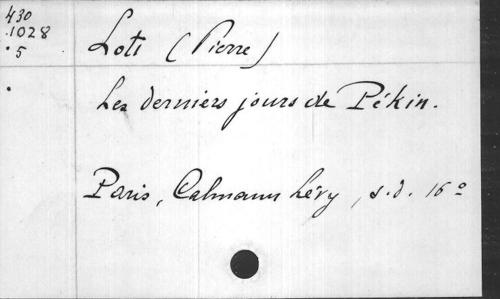 430
1028
.5
Loti (Pierre)
Les derniers jours de Pékin.
Paris, Calmann Lévy, s.d. 16º